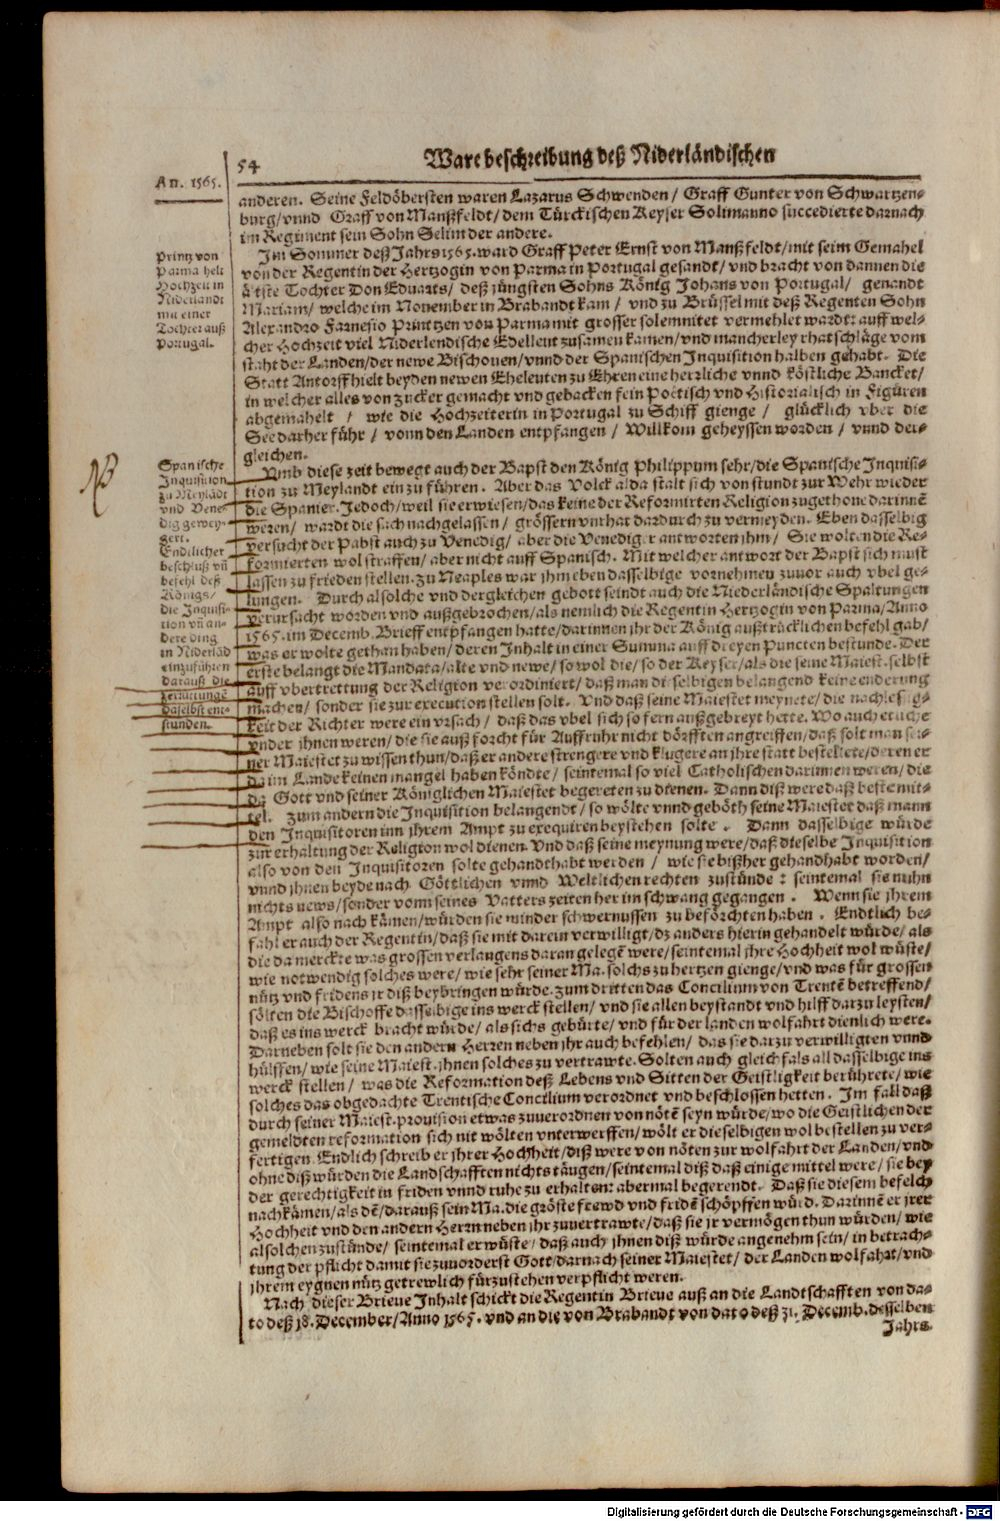 54
Ware beschreibung deß Niderländischen
An. 1565.
anderen. Seine Feldöbersten waren Lazarus Schwenden / Graff Gunter von Schwartzen-
burg/vnnd Graff von Manßfeldt/ dem Türckischen Keyser Solimanno succedierte darnach
im Regiment sein Sohn Selim der andere.
Im Sommer deß Jahrs 1565. ward Graff Peter Ernst von Manßfeldt/mit seim Gemahel
von der Regentin der Hertzogin von Parma in Portugal gesandt/ vnd bracht von dannen die
ältste Tochter Don Eduarts/ deß jüngsten Sohns König Johans von Portugal/ genandt
Mariam/ welche im Nouember in Brabandt kam / vnd zu Brüssel mit deß Regenten Sohn
Alexandro Farnesio Printzen von Parma mit grosser solemnitet vermehlet wardt: auff wel-
cher Hochzeit viel Niderlendische Edelleut zusamen kamen/vnd mancherley rhatschläge vom
staht der Landen/der newe Bischouen/vnnd der Spanischen Inquisition halben gehabt. Die
Statt Antorff hielt beyden newen Eheleuten zu Ehren eine herrliche vnnd köstliche Bancket/
in welcher alles von zucker gemacht vnd gebacken fein Poëtisch vnd Historialisch in Figuren
abgemahelt / wie die Hochzeiterin in Portugal zu Schiff gienge / glücklich vber die
See darher führ / vonn den Landen entpfangen / Willkom geheyssen worden / vnnd der-
gleichen.
Printz von
Parma helt
Hochzeit in
Niderlandt
mit einer
Tochter auß
Portugal.
Vmb diese zeit bewegt auch der Bapst den König Philippum sehr/die Spanische Inquisi-
tion zu Meylandt ein zu führen. Aber das Volck alda stalt sich von stundt zur Wehr wieder
die Spanier. Jedoch/weil sie erwiesen/das keine der Reformirten Religion zugethone darinnē
weren/ wardt die sach nachgelassen / grössern vnrhat dardurch zu vermeyden. Eben dasselbig
versucht der Pabst auch zu Venedig/ aber die Venediger antworten jhm/ Sie wolten die Re-
formierten wol straffen/ aber nicht auff Spanisch. Mit welcher antwort der Bapst sich must
lassen zu frieden stellen. Zu Neaples war jhm eben dasselbige vornehmen zuuor auch vbel ge-
lungen. Durch alsolche vnd dergleichen gebott seindt auch die Niederländische Spaltungen
verursacht worden vnd außgebrochen/als nemlich die Regentin Hertzogin von Parma/Anno
1565. im Decemb. Brieff entpfangen hatte/darinnen jhr der König außtrücklichen befehl gab/
was er wolte gethan haben/ deren Inhalt in einer Summa auff dreyen Puncten bestunde. Der
erste belangt die Mandata/alte vnd newe/ so wol die/ so der Keyser/als die seine Maiest. selbst
auff vbertrettung der Religion verordiniert/ daß man dieselbigen belangend keine enderung
machen/ sonder sie zur execution stellen solt. Vnd daß seine Maiestet meynete/ die nachlessig-
keit der Richter were ein vrsach/ daß das vbel sich so fern außgebreyt hette. Wo auch etliche
vnder jhnen weren/ die sie auß forcht für Auffruhr nicht dörfften angreiffen/daß solt man sei-
ner Maiestet zu wissen thun/daß er andere strengere vnd klugere an jhre statt bestellete/deren er
da im Lande keinen mangel haben köndte/ seintemal so viel Catholischen darinnen weren/ die
da Gott vnd seiner Königlichen Maiestet begereten zu dienen. Dann diß were daß beste mit-
tel. Zum andern die Inquisition belangendt/ so wölte vnnd geböth seine Maiestet daß mann
den Inquisitoren inn jhrem Ampt zu exequiren beystehen solte. Dann dasselbige würde
zur erhaltung der Religion wol dienen. Vnd daß seine meynung were/daß dieselbe Inquisition
also von den Inquisitoren solte gehandthabt werden / wie sie bißher gehandhabt worden/
vnnd jhnen beyde nach Göttlichen vnnd Weltlichen rechten zustünde: seintemal sie nuhn
nichts news/sonder vonn seines Vatters zeiten her im schwang gegangen. Wenn sie jhrem
Ampt also nach kämen/würden sie minder schwernussen zu beförchten haben. Endtlich be-
fahl er auch der Regentin/daß sie mit darein verwilligt/dz anders hierin gehandelt würde/ als
die da merckte was grossen verlangens daran gelegē were/seintemal jhre Hochheit wol wüste/
wie notwendig solches were/ wie sehr seiner Ma. solchs zu hertzen gienge/vnd was für grossen
nütz vnd fridens jr diß beybringen würde. Zum dritten das Concilium von Trentē betreffend/
sölten die Bischoffe dasselbige ins werck stellen/ vnd sie allen beystandt vnd hilff darzu leysten/
daß es ins werck bracht würde/ als sichs gebürte/ vnd für der landen wolfahrt dienlich were.
Darneben solt sie den andern Herren neben jhr auch befehlen/ das sie darzu verwilligten vnnd
hülffen/ wie seine Maiest. jhnen solches zu vertrawte. Solten auch gleichfals all dasselbige ins
werck stellen/ was die Reformation deß Lebens vnd Sitten der Geistligkeit berührete/ wie
solches das obgedachte Trentische Concilium verordnet vnd beschlossen hetten. Im fall daß
durch seiner Maiest. prouision etwas zuuerordnen von nötē seyn würde/ wo die Geistlichen der
gemeldten reformation sich nit wölten vnterwerffen/ wölt er dieselbigen wol bestellen zu ver-
fertigen. Endlich schreib er jhrer Hochheit/diß were von nöten zur wolfahrt der Landen/vnd
ohne diß würden die Landschafften nichts täugen/seintemal diß daß einige mittel were/ sie bey
der gerechtigkeit in friden vnnd ruhe zu erhalten: abermal begerendt. Daß sie diesem befelch
nachkämen/als dē/darauß sein Ma. die gröste frewd vnd fridē schöpffen würd. Darinnē er jrer
Hochheit vnd den andern Herrn neben jhr zuuertrawte/daß sie jr vermögen thun würden/ wie
alsolchen zustünde/ seintemal er wüste/ daß auch jhnen diß würde angenehm sein/ in betrach-
tung der pflicht damit sie zuuorderst Gott/darnach seiner Maiestet/ der Landen wolfahrt/vnd
jhrem eygnen nütz getrewlich fürzustehen verpflicht weren.
Nach dieser Brieue Inhalt schickt die Regentin Brieue auß an die Landtschafften von da-
to deß 18. December/Anno 1565. vnd an die von Brabandt von dato deß 21. Decemb. desselben
Jahrs.
NB
Spanische
Inquisition
zu Meylādt
vnd Vene-
dig gewey-
gert.
Endlicher
beschluß vñ
befehl deß
Königs/
die Inquisi-
tion vñ an-
dere ding
in Niderlād
einzuführen
darauß die
zerrüttungē
daselbst ent-
stunden.
Digitalisierung gefördert durch die Deutsche Forschungsgemeinschaft - DFG